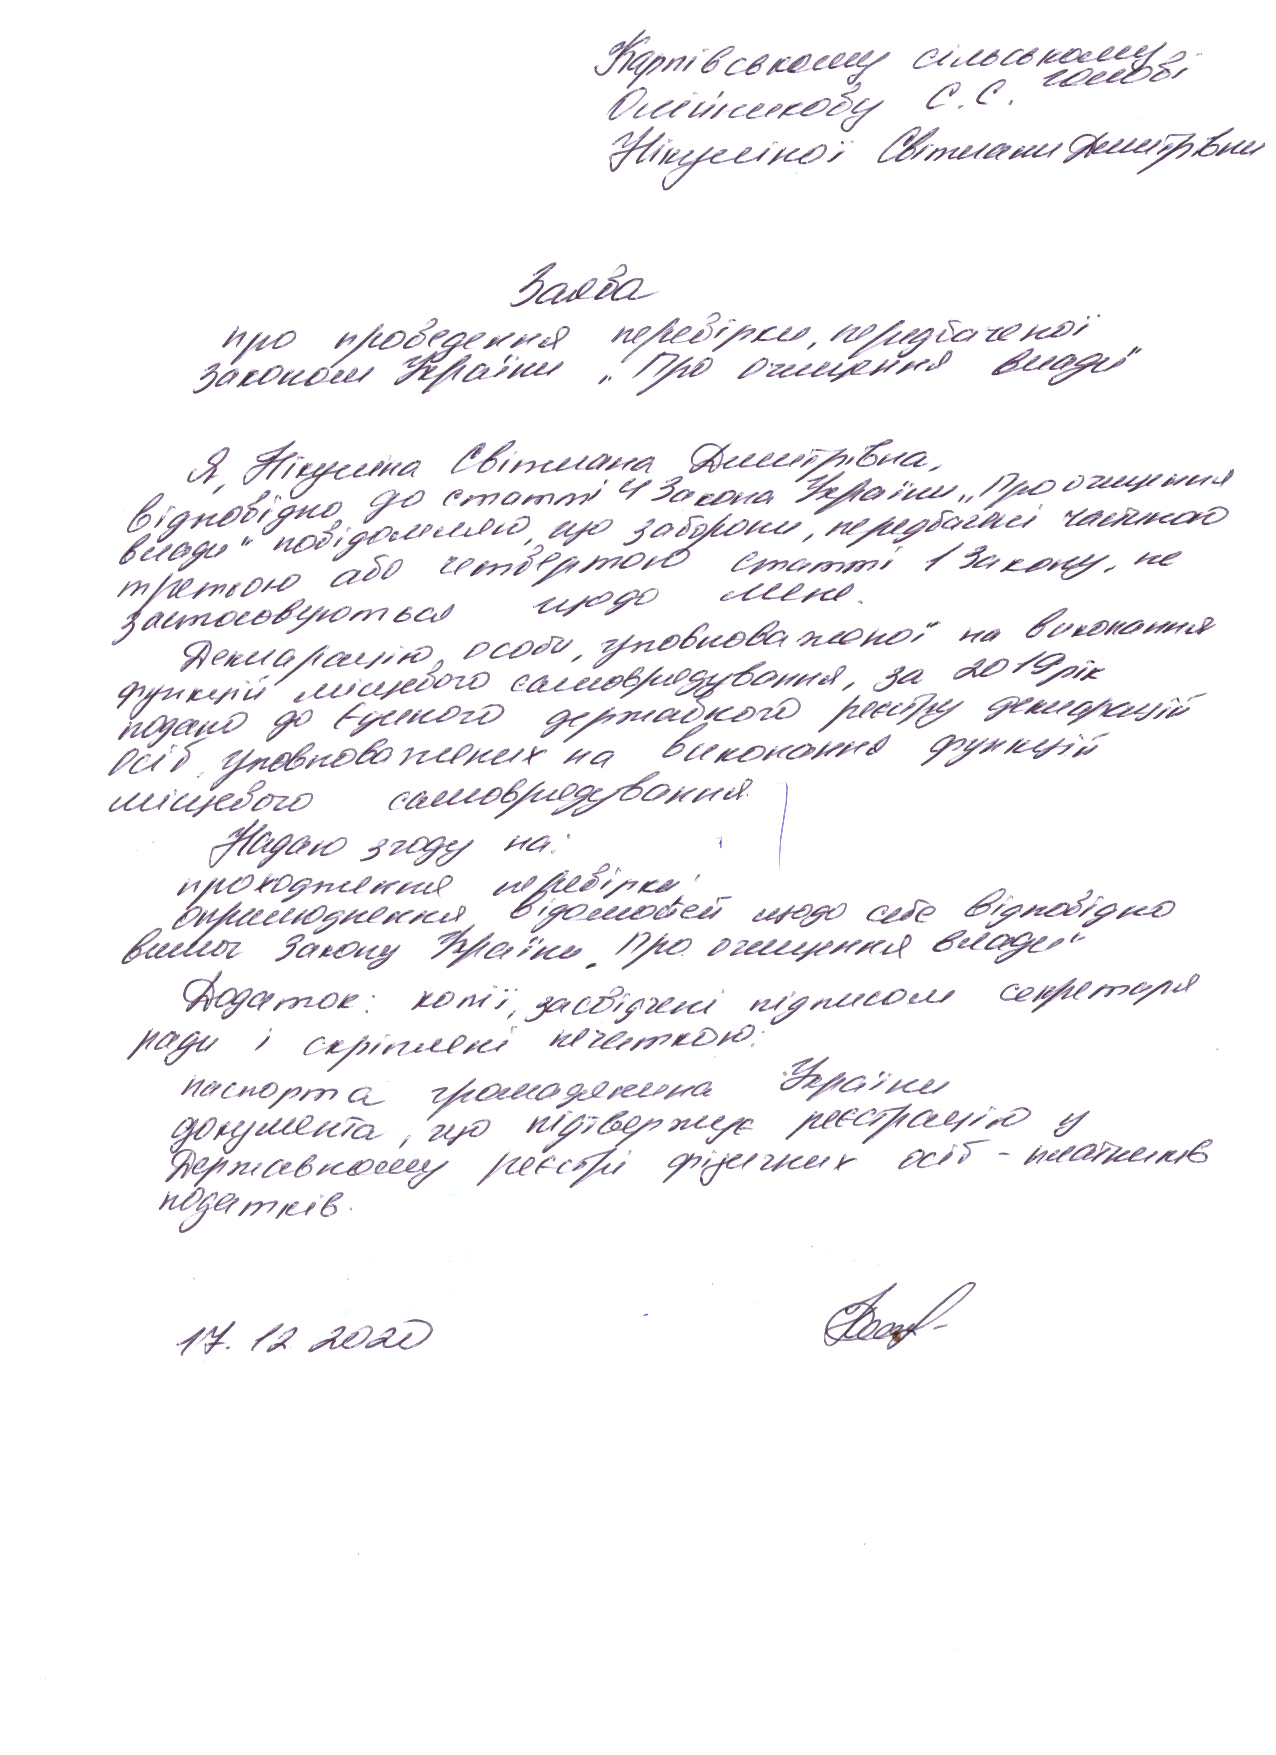 Карпівському сільському
голові
Олійникову С.С.
Нікуліної Світлани Дмитрівни
Заява
про проведення перевірки, передбаченої
Законом України „Про очищення влади"
Я, Нікуліна Світлана Дмитрівна,
відповідно до статті 4 Закона України „Про очищення
влади" повідомляю, що заборони, передбачені частиною
третьою або четвертою статті 1 Закону, не
застосовуються щодо мене.
Декларацію особи, уповноваженої на виконання
функцій місцевого самоврядування, за 2019 рік
подано до Єдиного державного реєстру декларацій
осіб, уповноважених на виконання функцій
місцевого самоврядування
Надаю згоду на:
проходження перевірки;
оприлюднення відомостей щодо себе відповідно
вимог Закону України „Про очищення влади"
Додаток: копії, засвідчені підписом секретаря
ради і скріплені печаткою:
паспорта громадянина України
документа, що підтверджує реєстрацію у
Державному реєстрі фізичних осіб - платників
податків.
17.12 2020